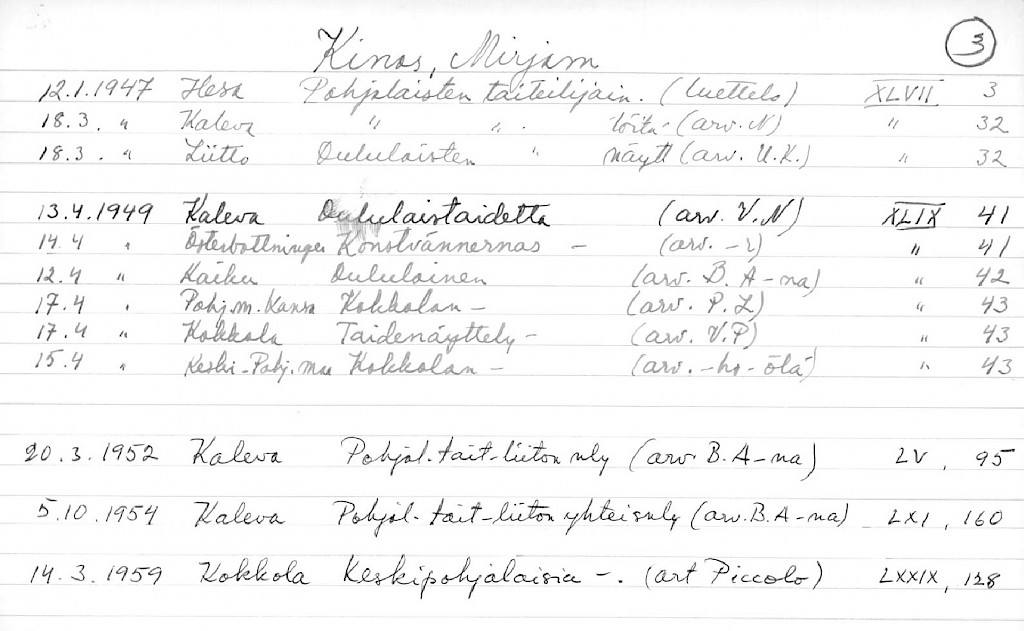 3
Kinas, Mirjam
12.1.1947 Hesa Pohjalaisten taiteilijain. (luettelo) XLVII 3
18.3. " Kaleva " " töitä (arv. N) " 32
18.3. " Liitto Oululaisten " näytt (arv. U.K.) " 32
13.4.1949 Kaleva Oululaistaidetta (arv. V.N) XLIX 41
14.4 " Österbottningen Konstvännernas – (arv. –r) " 41
12.4 " Kaiku Oululainen (arv. B. A–na) " 42
17.4 " Pohj.m. Kansa Kokkolan – (arv. P.L) " 43
17.4 " Kokkola Taidenäyttely – (arv. V.P) " 43
15.4 " Keski-Pohj.maa Kokkolan – (arv. –ho–ölä) " 43
20.3.1952 Kaleva Pohjal. tait-liiton nly (arv. B. A–na) LV, 95
5.10.1954 Kaleva Pohjal- tait-liiton yhteisnly (arv. B.A–na) LXI, 160
14.3.1959 Kokkola Keskipohjalaisia –. (art Piccolo) LXXIX, 128